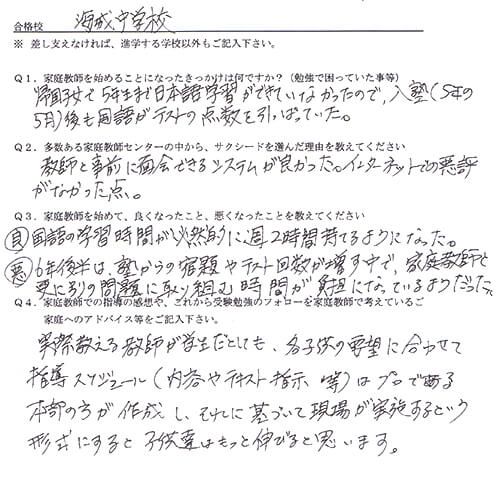 合格校 海城中学校
※ 差し支えなければ、進学する学校以外もご記入下さい。
Q1. 家庭教師を始めることになったきっかけは何ですか?(勉強で困っていた事等)
帰国子女で5年生まで日本語学習ができていなかったので、入塾(5年の
5月)後も国語がテストの点数を引っぱっていた。
Q2. 多数ある家庭教師センターの中から、サクシードを選んだ理由を教えてください
教師と事前に面会できるシステムが良かった。インターネットでの悪評
がなかった点。
Q3. 家庭教師を始めて、良くなったこと、悪くなったことを教えてください
良 国語の学習時間が必然的に週2時間持てるようになった。
悪 6年後半は、塾からの宿題やテスト回数が増す中で、家庭教師と
更に別の問題に取り組む時間が負担になっているようだった。
Q4. 家庭教師での指導の感想や、これから受験勉強のフォローを家庭教師で考えているご
家庭へのアドバイス等をご記入下さい。
実際教える教師が学生だとしても、各子供の要望に合わせて
指導スケジュール(内容やテキスト指示 等)はプロである
本部の方が作成し、それに基づいて現場が実施するという
形式にすると子供達はもっと伸びると思います。